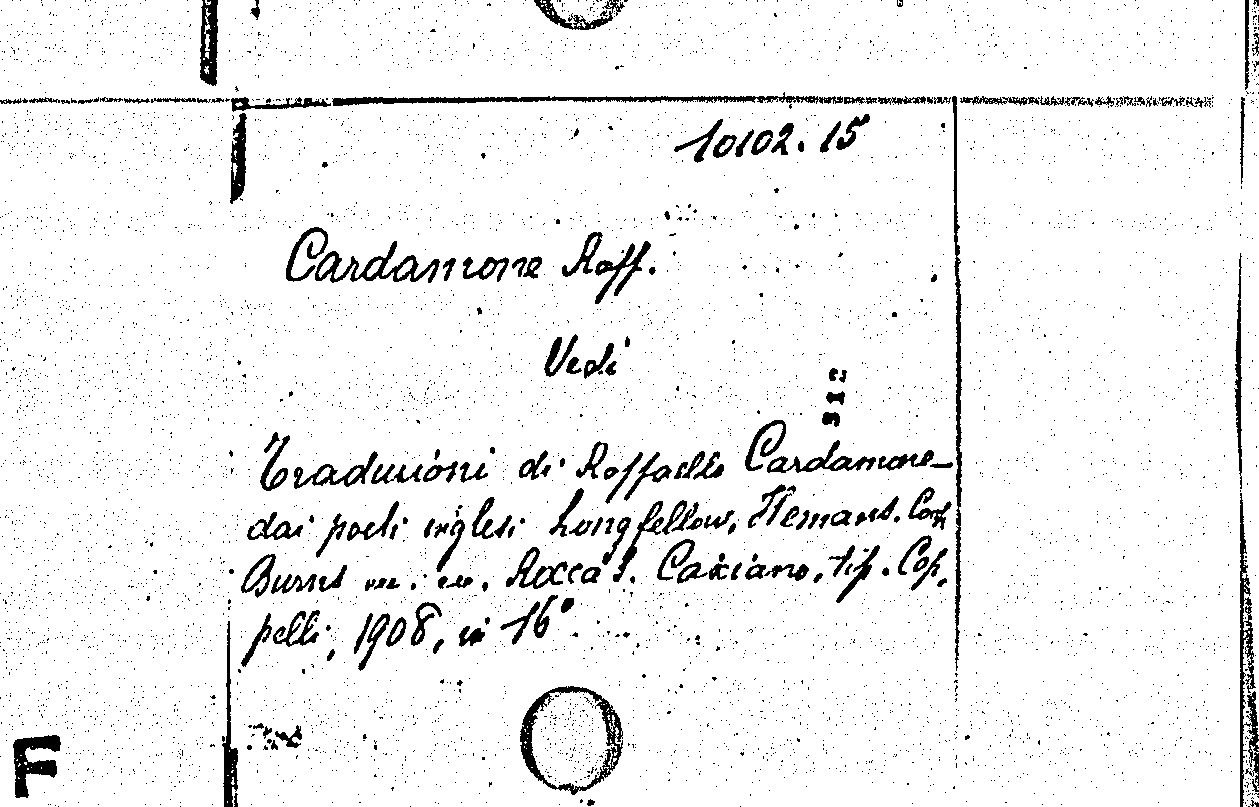 10102.15
Cardamone Raff.
Vedi
312
Traduzioni di Raffaello Cardamone
dai poeti inglesi Longfellow, Hemans.
Burns Rocca S. Casciano, tip. Cap.
pelli, 1908, in 16°
F